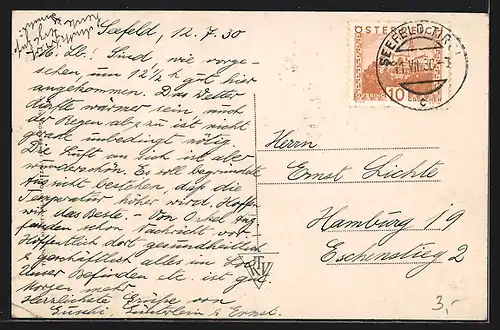 Seefeld, 12.7.30
M. Lb! Sind, wie vorge-
sehen, um 12½ h gut hier
angekommen. Das Wetter
dürfte wärmer sein, auch
der Regen ab & zu ist nicht
gerade unbedingt nötig.
Die Luft an sich ist aber
wunderschön. Es soll begründete
Aussicht bestehen, daß die
Temperatur höher wird. Hoffen
wir das Beste. – Von Onkel Aug.
fanden schon Nachricht vor.
Hoffentlich dort gesundheitlich
& geschäftlich alles im
Unser Befinden etc. ist gut.
Morgen mehr
Herzlichste Grüße von
& Ernst.
ÖSTERREICH
10 GROSCHEN
SEEFELD
Herrn
Ernst Lichte
Hamburg 19
Eschenstieg 2
3,-